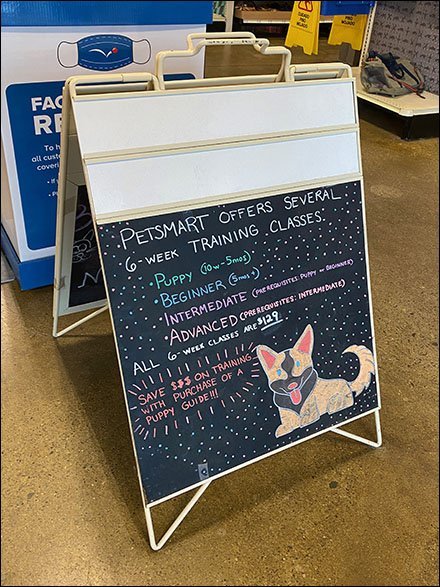 FAC
RE
To h
all custo
coverin
• If
• P
PETSMART OFFERS SEVERAL
6-WEEK TRAINING CLASSES
• PUPPY (10w-5mos)
• BEGINNER (5mos+)
• INTERMEDIATE (PREREQUISITES: PUPPY or BEGINNER)
• ADVANCED (PREREQUISITES: INTERMEDIATE)
ALL 6-WEEK CLASSES ARE $129
SAVE $$$ ON TRAINING
WITH PURCHASE OF A
PUPPY GUIDE!!!